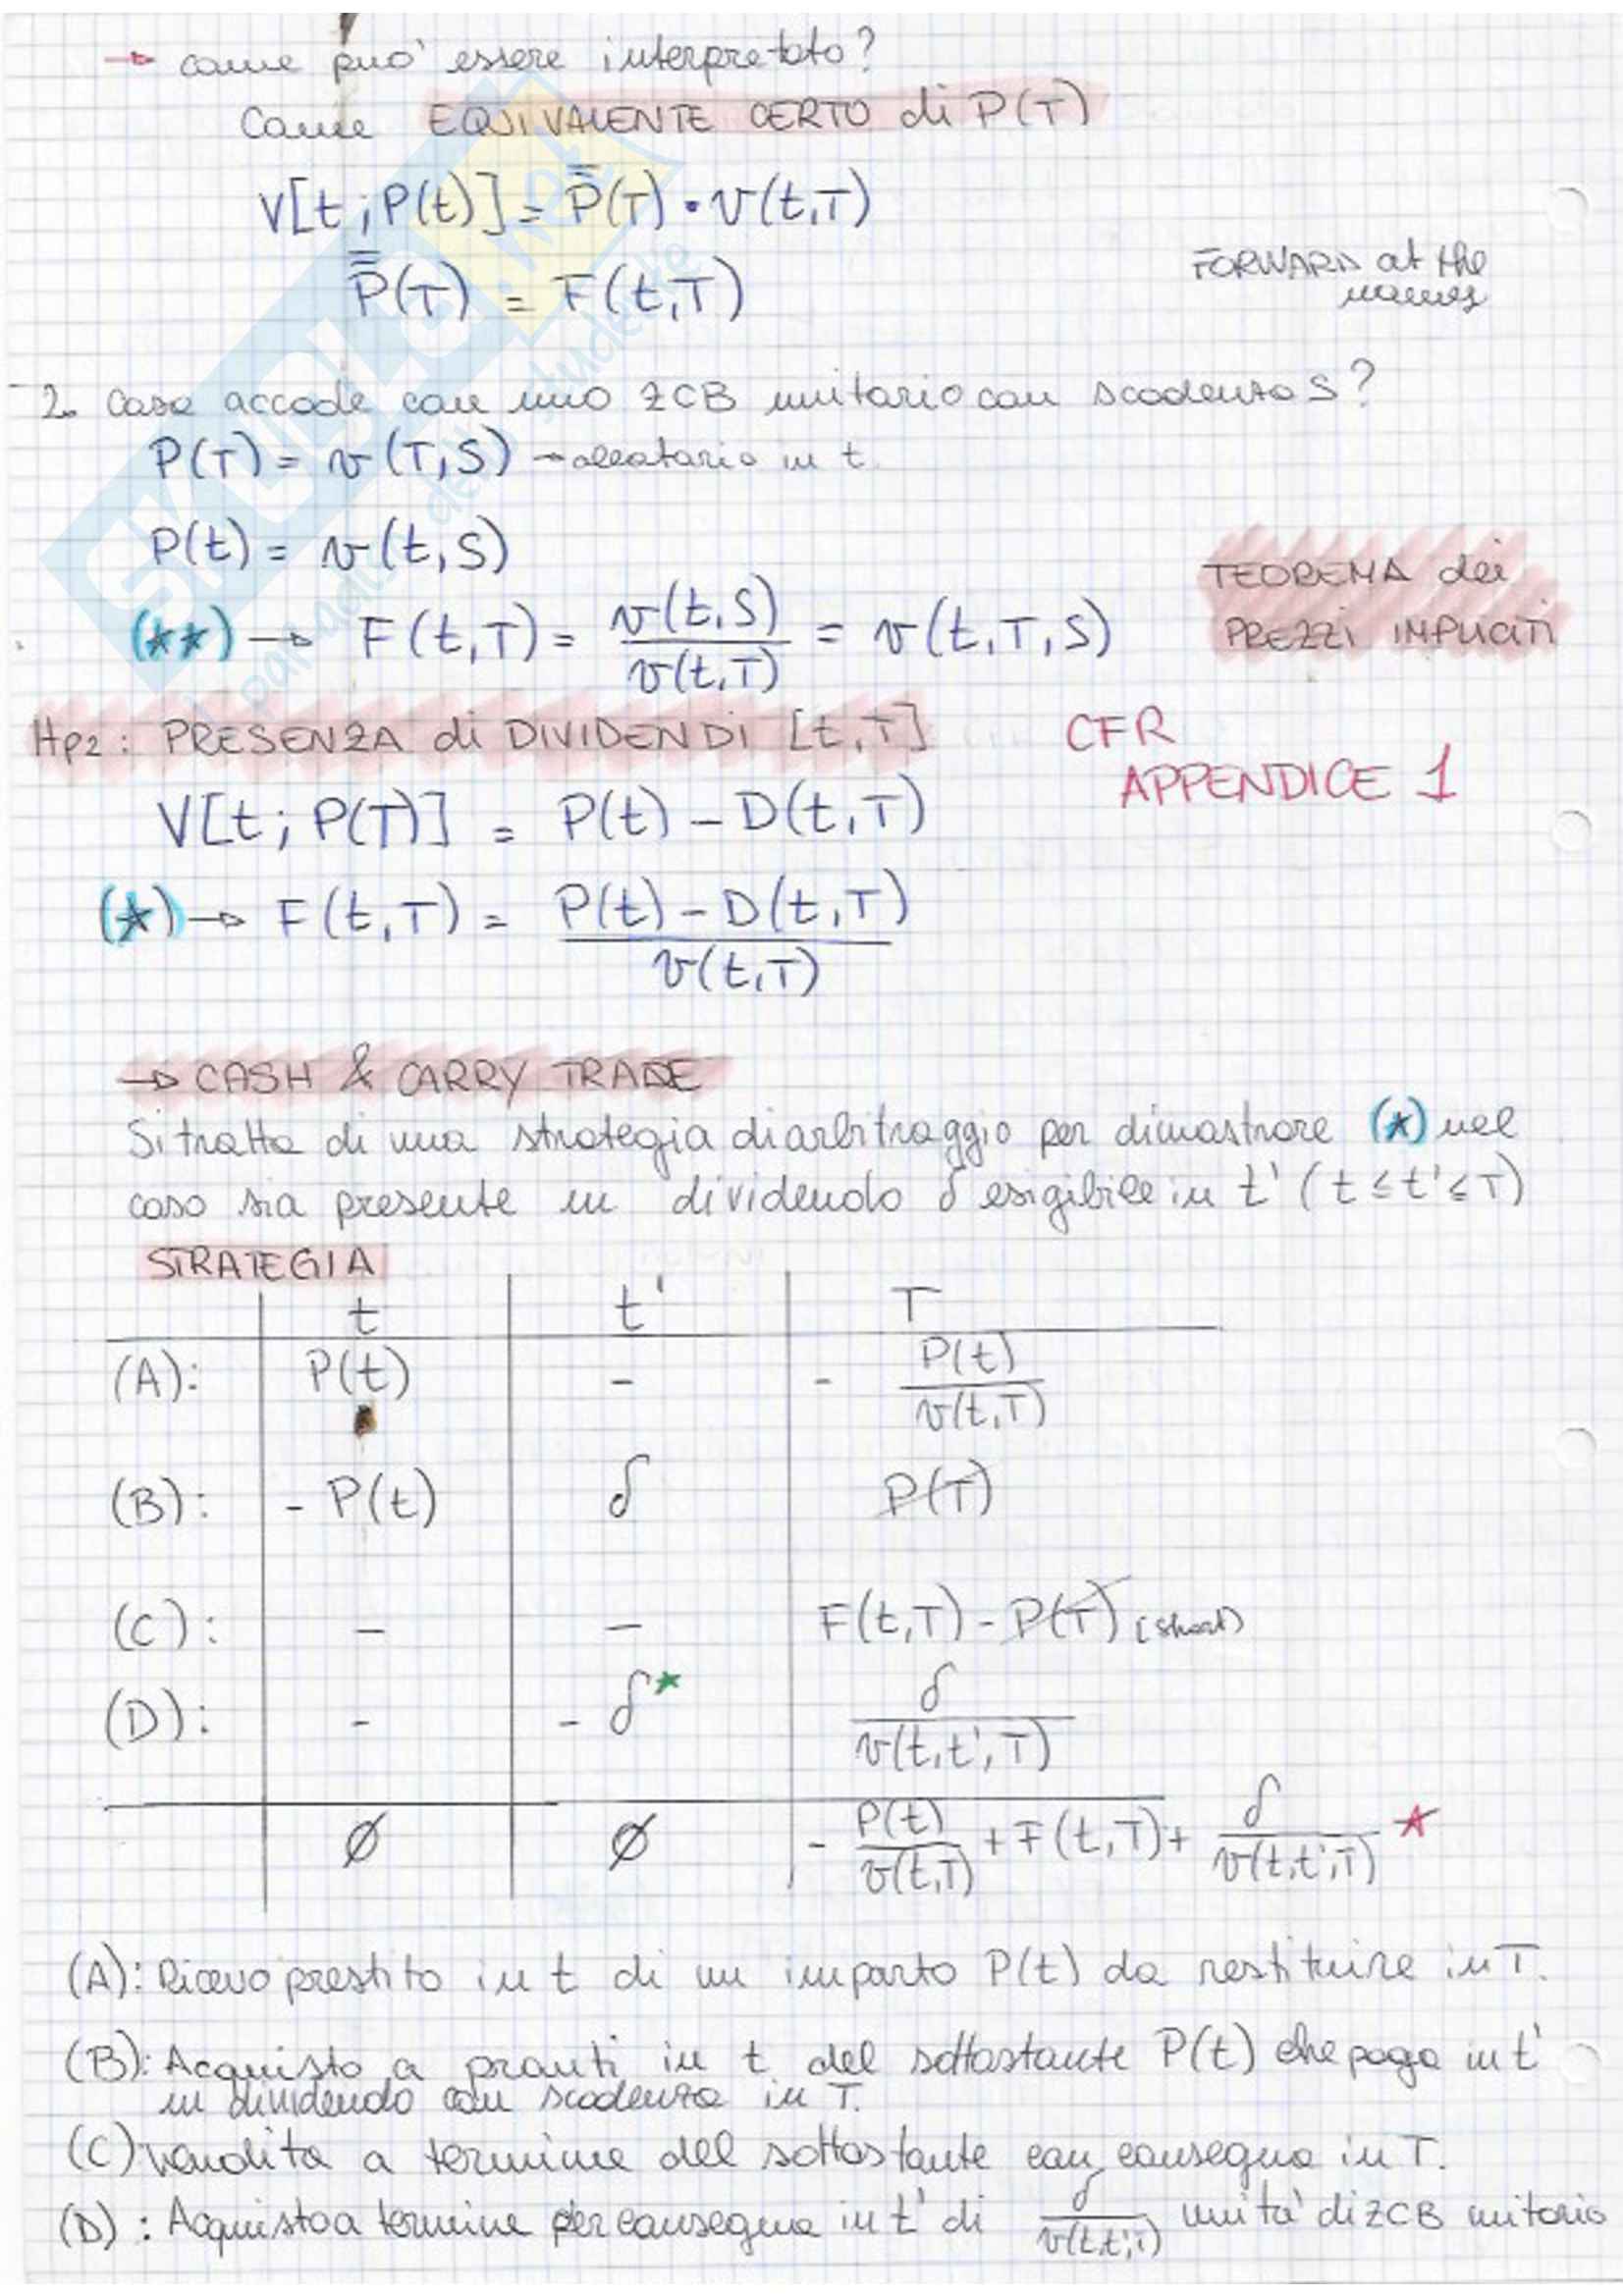 → come può essere interpretato?
Come EQUIVALENTE CERTO di P(T)
V[t; P(t)] = P̿(T) • v(t,T)
P̿(T) = F(t,T)
FORWARD at the
money
2. Cosa accade con uno ZCB unitario con scadenza S?
P(T) = v(T,S) → aleatorio in t.
P(t) = v(t,S)
(**) → F(t,T) = v(t,S) / v(t,T) = v(t,T,S)
TEOREMA dei
PREZZI IMPLICITI
Hp2: PRESENZA di DIVIDENDI [t,T]
CFR
APPENDICE 1
V[t; P(T)] = P(t) - D(t,T)
(*) → F(t,T) = P(t) - D(t,T) / v(t,T)
→ CASH & CARRY TRADE
Si tratta di una strategia di arbitraggio per dimostrare (*) nel
caso sia presente un dividendo δ esigibile in t' (t ≤ t' ≤ T)
STRATEGIA
t t' T
(A): P(t) - - P(t) / v(t,T)
(B): - P(t) δ P(T)
(C): - - F(t,T) - P(T) (short)
(D): - - δ* δ / v(t,t',T)
∅ ∅ - P(t) / v(t,T) + F(t,T) + δ / v(t,t',T) *
(A): Ricevo prestito in t di un importo P(t) da restituire in T.
(B): Acquisto a pronti in t del sottostante P(t) che paga in t'
un dividendo con scadenza in T.
(C) vendita a termine del sottostante con consegna in T.
(D): Acquisto a termine per consegna in t' di δ / v(t,t',T) unità di ZCB unitario
SKUOLA.net
i paladini dello studente